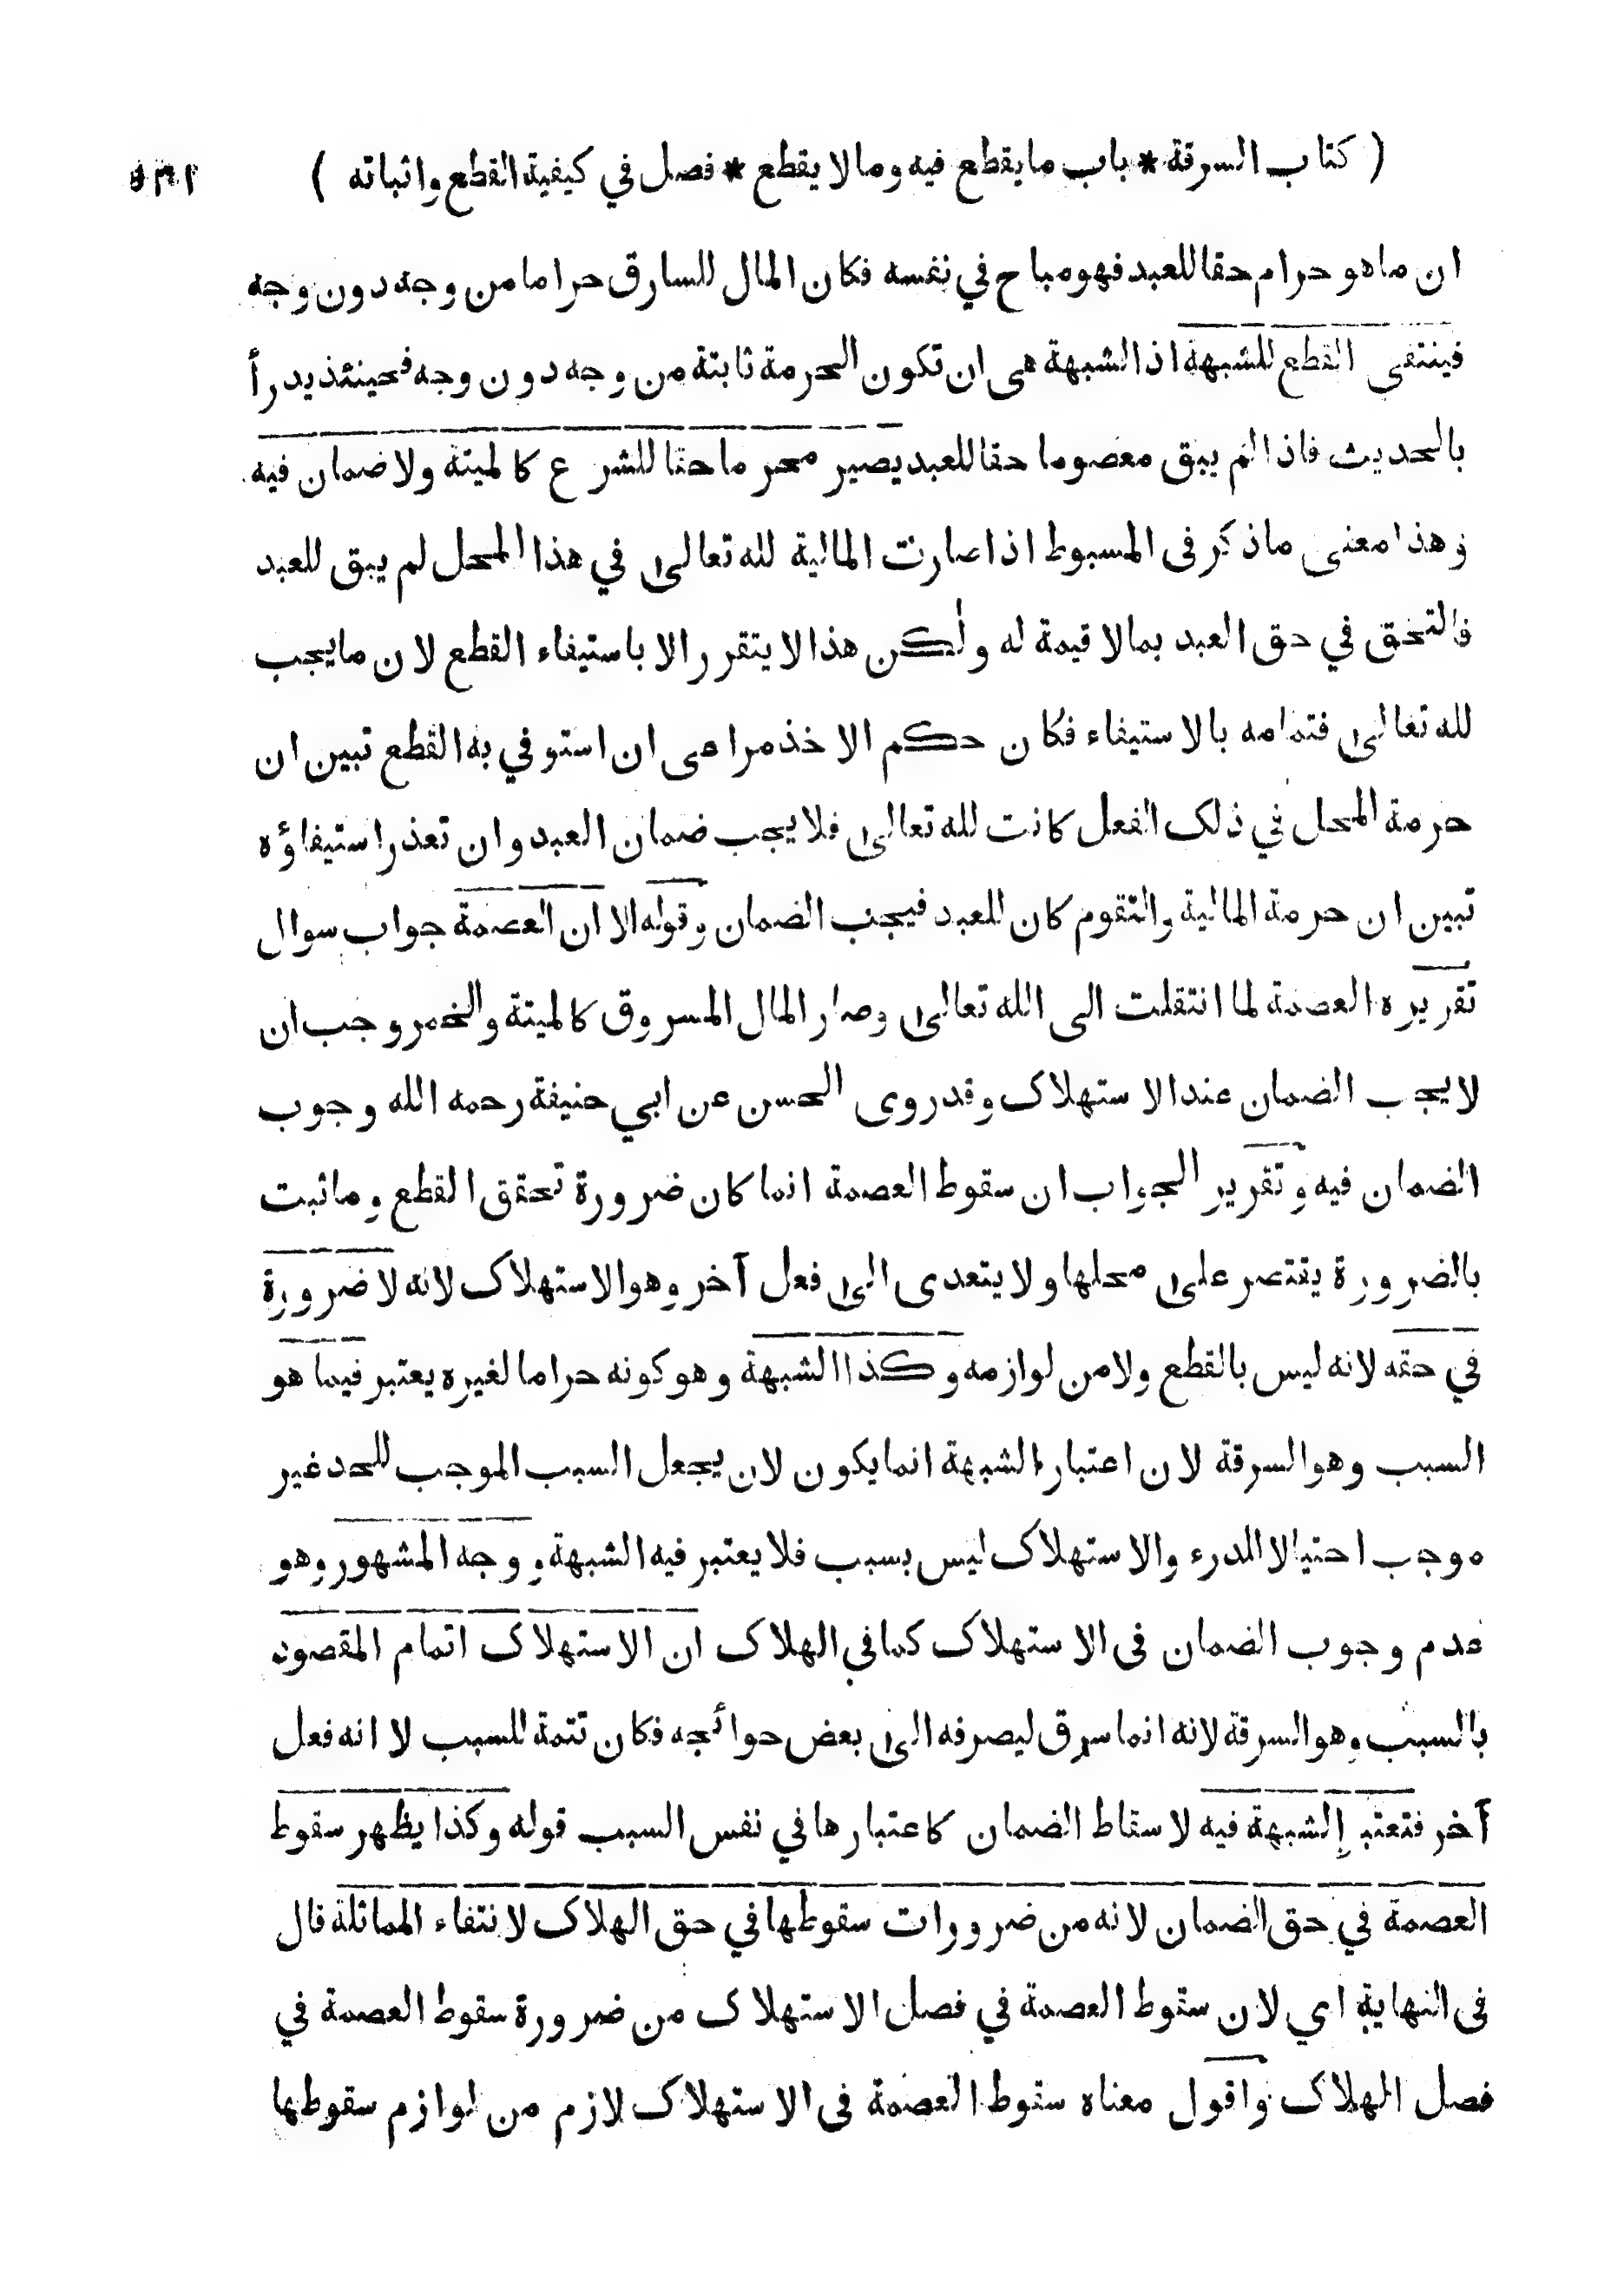 ( كتاب السرقة * باب ما يقطع فيه وما لا يقطع * فصل في كيفية القطع واثباته )
ان ما هو حرام حقا للعبد فهو مباح في نفسه فكان المال للسارق حراما من وجه دون وجه
فينتفى القطع للشبهة اذ الشبهة هى ان تكون الحرمة ثابتة من وجه دون وجه فحينئذ يدرأ
بالحديث فاذا لم يبق معصوما حقا للعبد يصير محرما حقا للشرع كالميتة ولا ضمان فيه
وهذا معنى ما ذكر فى المبسوط اذا صارت المالية لله تعالى في هذا المحل لم يبق للعبد
فالتحق في حق العبد بما لا قيمة له ولكن هذا لا يتقرر الا باستيفاء القطع لان ما يجب
لله تعالى فتمامه بالاستيفاء فكان حكم الاخذ مراعى ان استوفي به القطع تبين ان
حرمة المحل في ذلك الفعل كانت لله تعالى فلا يجب ضمان العبد وان تعذر استيفاؤه
تبين ان حرمة المالية والتقوم كان للعبد فيجب الضمان وقوله الا ان العصمة جواب سوال
تقريره العصمة لما انتقلت الى الله تعالى وصار المال المسروق كالميتة والخمر وجب ان
لا يجب الضمان عند الاستهلاك وقد روى الحسن عن ابي حنيفة رحمه الله وجوب
الضمان فيه وتقرير الجواب ان سقوط العصمة انما كان ضرورة تحقق القطع وما ثبت
بالضرورة يقتصر على محلها ولا يتعدى الى فعل آخر وهو الاستهلاك لانه لا ضرورة
في حقه لانه ليس بالقطع ولا من لوازمه وكذا الشبهة وهو كونه حراما لغيره يعتبر فيما هو
السبب وهو السرقة لان اعتبار الشبهة انما يكون لان يجعل السبب الموجب للحد غير
موجب احتيالا للدرء والاستهلاك ليس بسبب فلا يعتبر فيه الشبهة ووجه المشهور وهو
عدم وجوب الضمان فى الاستهلاك كما في الهلاك ان الاستهلاك اتمام المقصود
بالسبب وهو السرقة لانه انما سرق ليصرفه الى بعض حوائجه فكان تتمة للسبب لا انه فعل
آخر فتعتبر الشبهة فيه لاسقاط الضمان كاعتبارها في نفس السبب قوله وكذا يظهر سقوط
العصمة في حق الضمان لانه من ضرورات سقوطها في حق الهلاك لانتفاء المماثلة قال
فى النهاية اي لان سقوط العصمة في فصل الاستهلاك من ضرورة سقوط العصمة في
فصل الهلاك واقول معناه سقوط العصمة فى الاستهلاك لازم من لوازم سقوطها